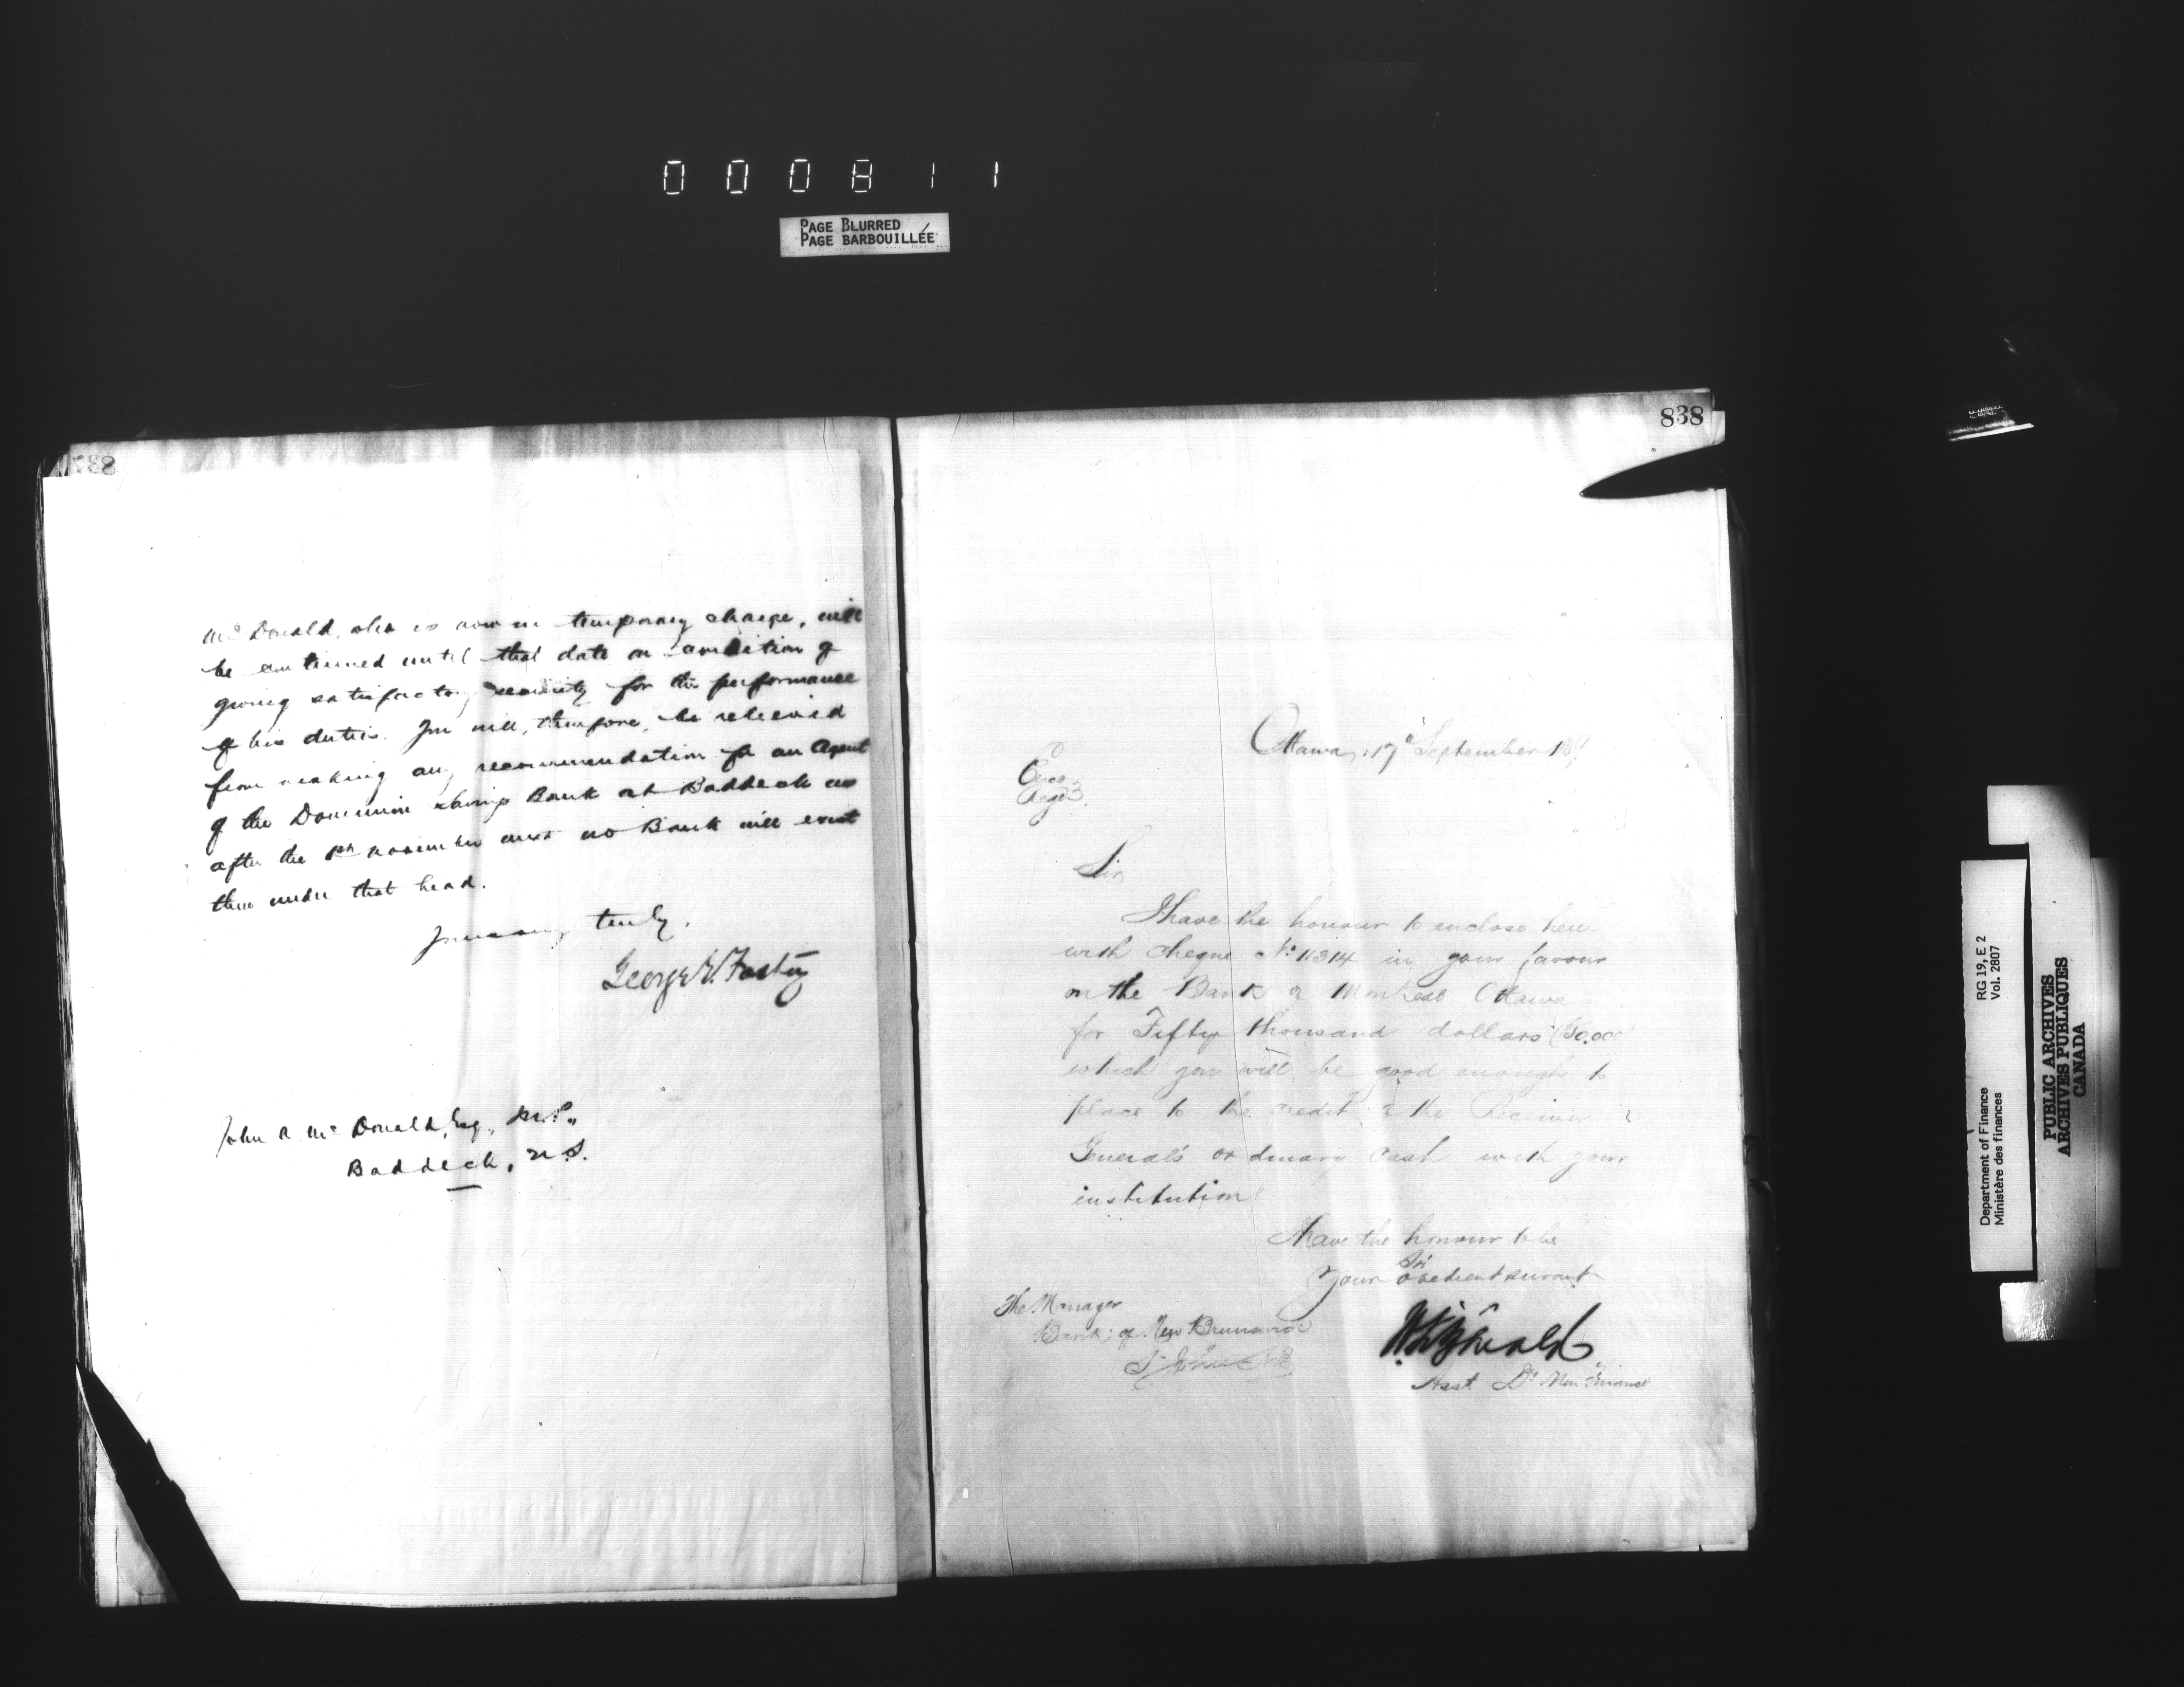 000811
PAGE BLURRED
PAGE BARBOUILLÉE
837
McDonald, who is now in temporary charge, will
be continued until that date on condition of
giving satisfactory security for the performance
of his duties. You will, therefore, be relieved
from making any recommendation for an Agent
of the Dominion Savings Bank at Baddeck as
after the 1st November next no Bank will exist
there under that head.
Yours very truly,
George E. Foster
John A. McDonald, Esq., M.P.,
Baddeck, N.S.
838
Ottawa: 17th September 18
Sir
I have the honour to enclose here
with cheque No 11314 in your favour
on the Bank of Montreal Ottawa
for Fifty thousand dollars ($50,000)
which you will be good enough to
place to the credit of the Receiver
General's ordinary Cash with your
institution
I have the honour to be
Sir
Your obedient servant
The Manager
Bank of New Brunswick
St John NB
Asst Dy Min Finance
Department of Finance RG 19, E 2
Ministère des finances Vol. 2807
PUBLIC ARCHIVES
ARCHIVES PUBLIQUES
CANADA